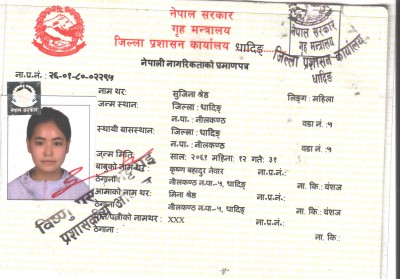 नेपाल सरकार
गृह मन्त्रालय
जिल्ला प्रशासन कार्यालय धादिङ्ग
नेपाली नागरिकताको प्रमाणपत्र
नेपाल सरकार
गृह मन्त्रालय
जिल्ला प्रशासन कार्यालय
धादिङ
ना.प्र.नं. : २६-०१-८०-०२२९५
नाम थर: सुजिना श्रेष्ठ लिङ्ग: महिला
जन्म स्थान: जिल्ला : धादिङ
न.पा. : नीलकण्ठ वडा नं :५
स्थायी बासस्थान: जिल्ला : धादिङ
न.पा. : नीलकण्ठ वडा नं :५
जन्म मिति: साल: २०६१ महिना: १२ गते: ३१
बाबुको नाम थर: कृष्ण बहादुर नेवार ना.प्र.नं.:
ठेगाना: नीलकण्ठ न.पा.-५, धादिङ ना. कि.: वंशज
आमाको नाम थर: मिना श्रेष्ठ ना.प्र.नं.:
ठेगाना: नीलकण्ठ न.पा.-५, धादिङ ना. कि.: वंशज
पति/पत्नीको नामथर: XXX ना.प्र.नं.:
ठेगाना: ना. कि.:
विष्णु
प्रशासकीय